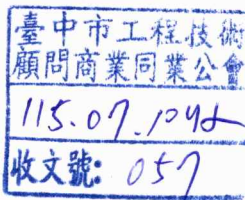 臺中市工程技術
顧問商業同業公會
115.07.
收文號: 057